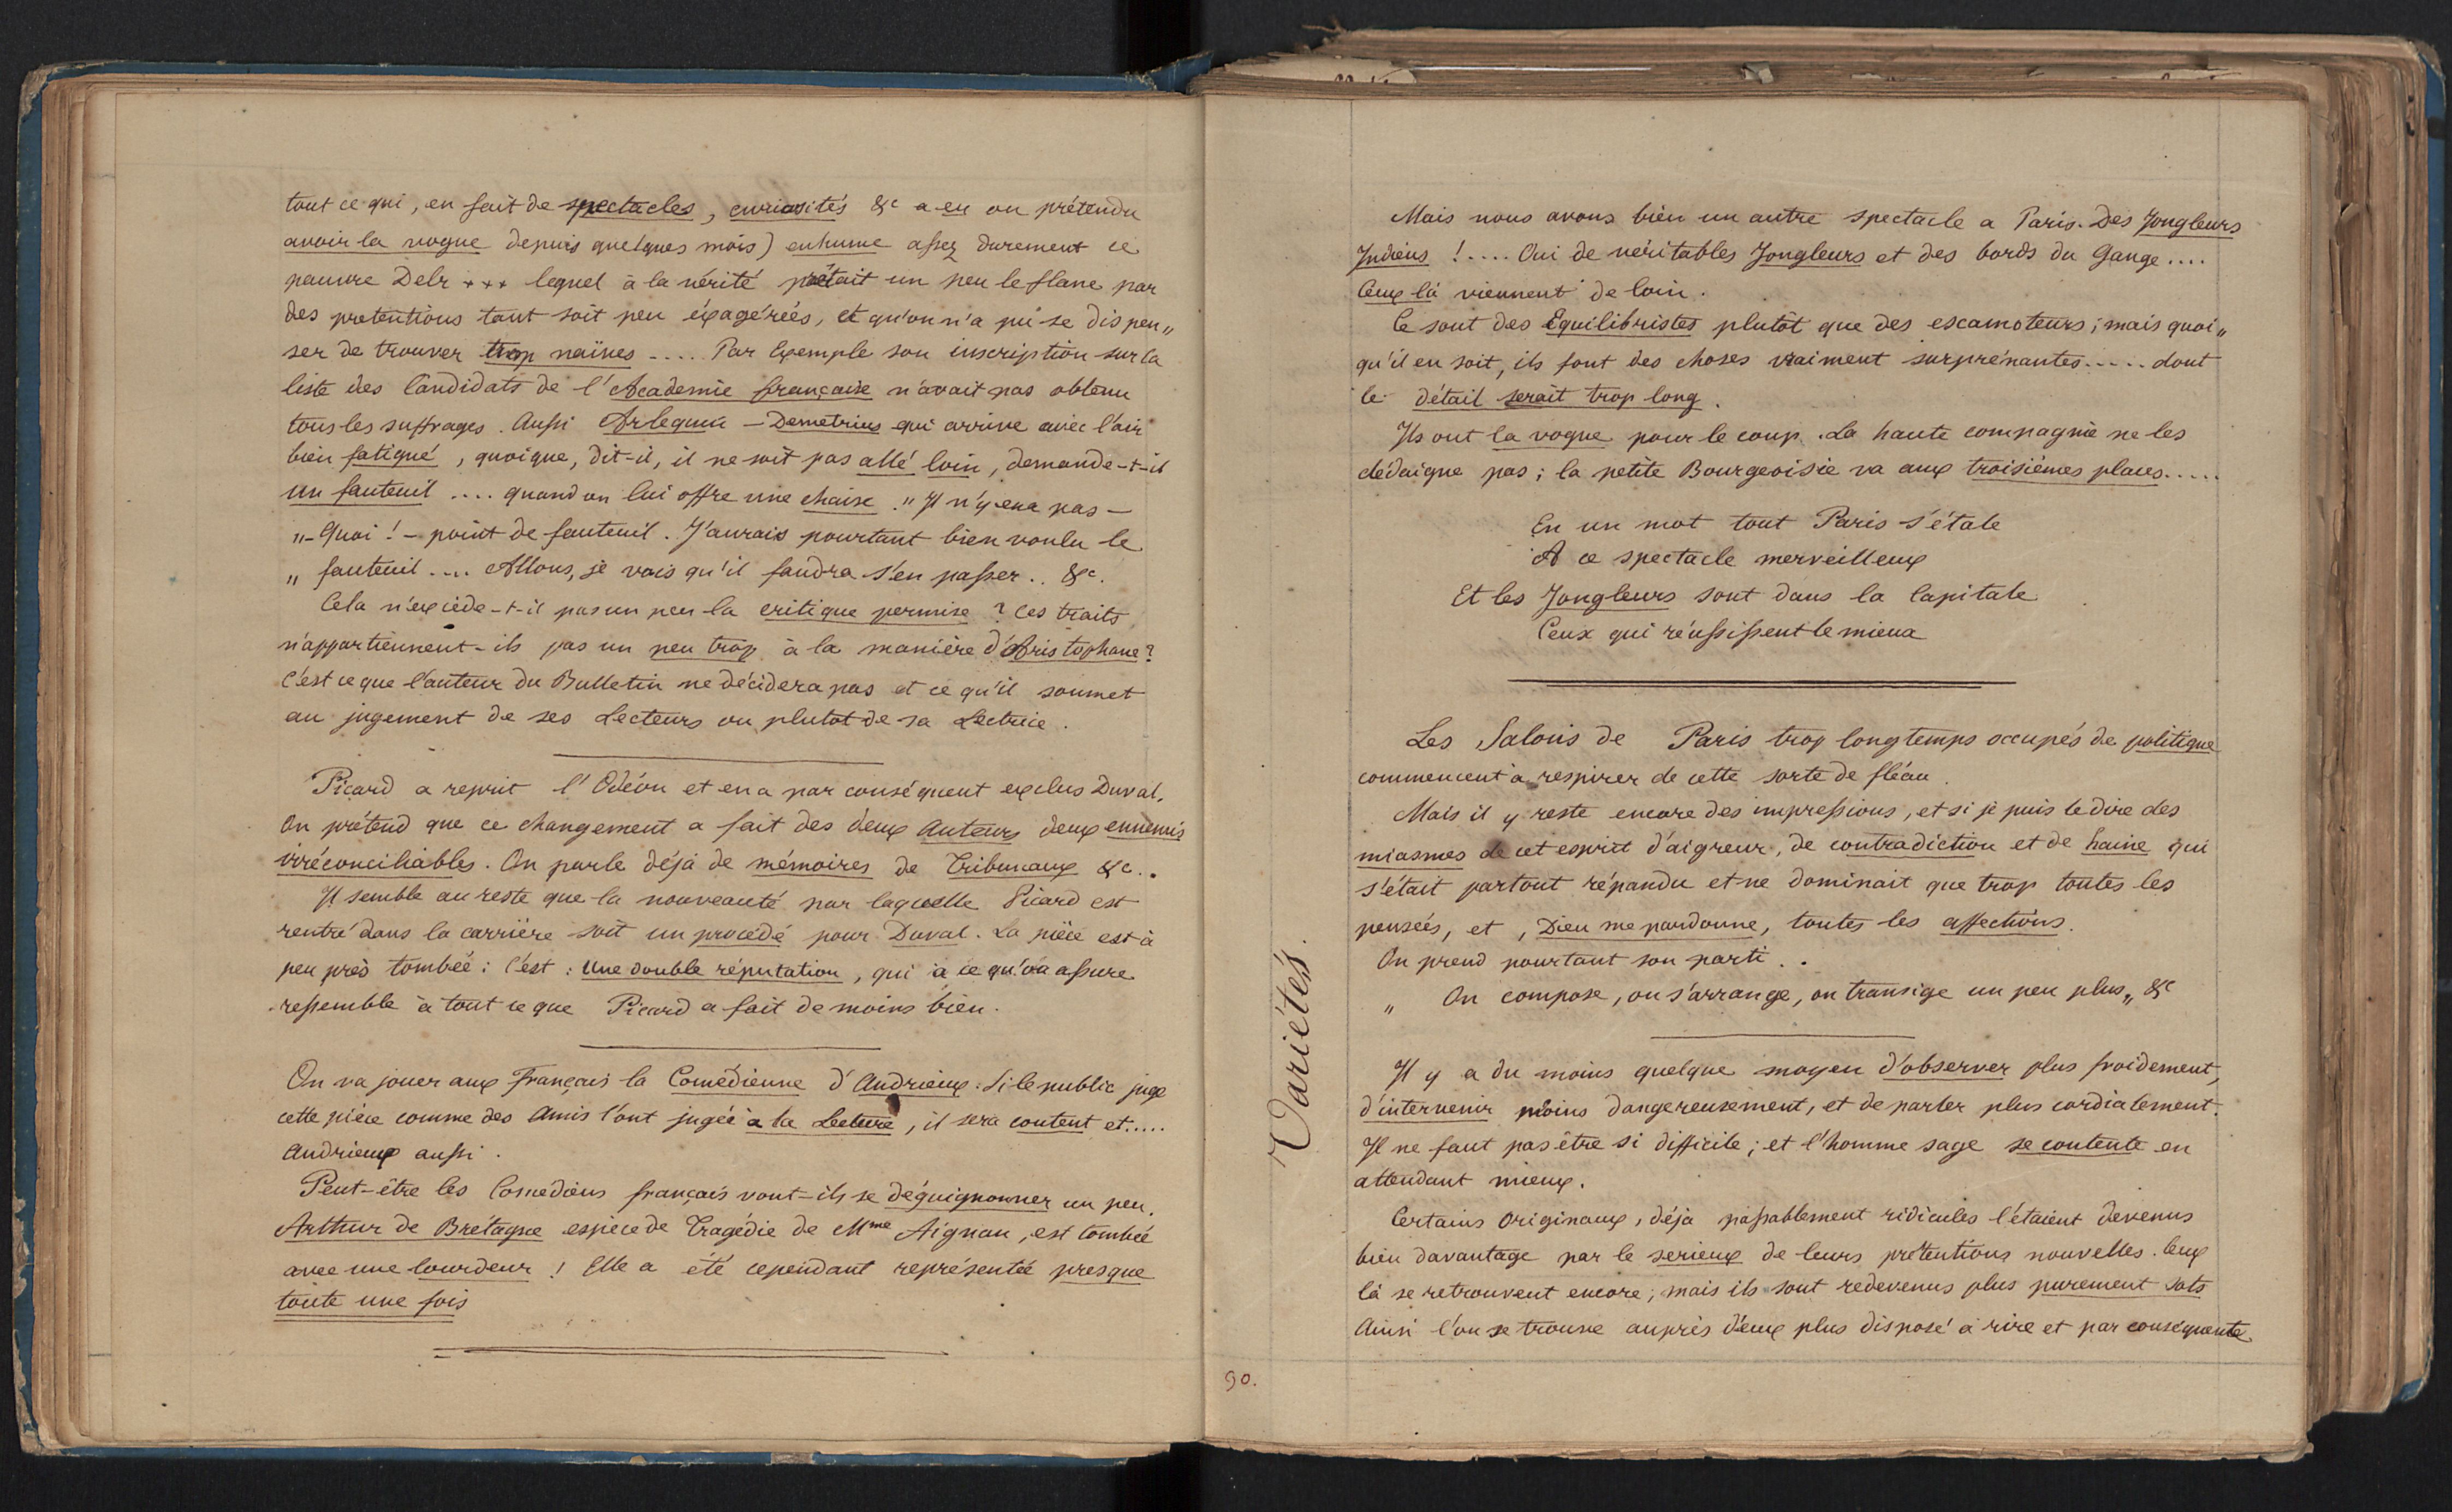 tout ce qui, en fait de spectacles, curiosités &c a eu ou prétendu
avoir la vogue depuis quelques mois) enhume assez durement ce
pauvre Delr *** lequel à la vérité prêtait un peu le flanc par
des pretentions tant soit peu éxagérées, et qu'on n'a pu se dispen„
ser de trouver trop naïves ..... Par Exemple son inscription sur la
liste des Candidats de l'Academie française n'avait pas obtenu
tous les suffrages. Aussi Arlequin – Demetrius qui arrive avec l'air
bien fatigué, quoique, dit-il, il ne soit pas allé loin, demande-t-il
un fauteuil .... quand on lui offre une chaise. " Il n'y en a pas –
„ – Quoi ! – point de fauteuil. J'aurais pourtant bien voulu le
„ fauteuil .... Allons, je vois qu'il faudra s'en passer .. &c.
Cela n'excède-t-il pas un peu la critique permise ? Ces traits
n'appartiennent-ils pas un peu trop à la manière d'Aristophane ?
C'est ce que l'auteur du Bulletin ne décidera pas et ce qu'il soumet
au jugement de ses Lecteurs ou plutot de sa Lectrice.
Picard a reprit l'Odéon et en a par conséquent exclus Duval.
On prétend que ce changement a fait des deux Auteurs deux ennemis
irréconciliables. On parle déjà de mémoires de Tribunaux &c..
Il semble au reste que la nouveauté par laquelle Picard est
rentré dans la carrière soit un procédé pour Duval. La pièce est à
peu près tombée : C'est : Une double réputation, qui à ce qu'on assure
ressemble à tout ce que Picard a fait de moins bien.
On va jouer aux Français la Comédienne d'Andrieux. Si le public juge
cette pièce comme des Amis l'ont jugée à la Lecture, il sera content et.....
Andrieux aussi.
Peut-être les Comediens français vont-ils se déguignonner un peu.
Arthur de Brétagne espèce de Tragédie de Mme Aignan, est tombée
avec une lourdeur ! Elle a été cependant représentée presque
toute une fois
Mais nous avons bien un autre spectacle a Paris. Des Jongleurs
Indiens !.... Oui de véritables Jongleurs et des bords du Gange....
Ceux là viennent de loin.
Ce sont des Equilibristes plutôt que des escamoteurs ; mais quoi„
qu'il en soit, ils font des choses vraiment surprénantes..... dont
le détail serait trop long.
Ils ont la vogue pour le coup. La haute compagnie ne les
dédaigne pas ; la petite Bourgeoisie va aux troisiémes places.....
En un mot tout Paris s'étale
A ce spectacle merveilleux
Et les Jongleurs sont dans la Capitale
Ceux qui réussissent le mieux
Variétés.
Les Salons de Paris trop longtemps occupés de politique
commencent à respirer de cette sorte de fléau.
Mais il y reste encore des impressions, et si je puis le dire des
miasmes de cet esprit d'aigreur, de contradiction et de haine qui
s'était partout répandu et ne dominait que trop toutes les
pensées, et, Dieu me pardonne, toutes les affections.
On prend pourtant son parti ..
„ On compose, on s'arrange, on transige un peu plus „ &c
Il y a du moins quelque moyen d'observer plus froidement,
d'intervenir moins dangereusement, et de parler plus cordialement.
Il ne faut pas être si difficile ; et l'homme sage se contente en
attendant mieux.
Certains Originaux, déja passablement ridicules l'étaient devenus
bien davantage par le serieux de leurs prétentions nouvelles. Ceux
là se retrouvent encore ; mais ils sont redevenus plus purement sots
Ainsi l'on se trouve auprès d'eux plus disposé à rire et par conséquente
90.